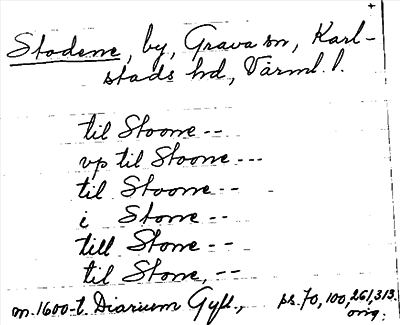 Stodene, by, Grava sn, Karl-
stads hd, Värml. l.
til Stoone --
vp til Stoone ---
til Stoone -- -
i Stone --
till Stone --
til Stone, --
m. 1600-t. Diarium Gyll., ps. 70, 100, 261, 313.
orig.